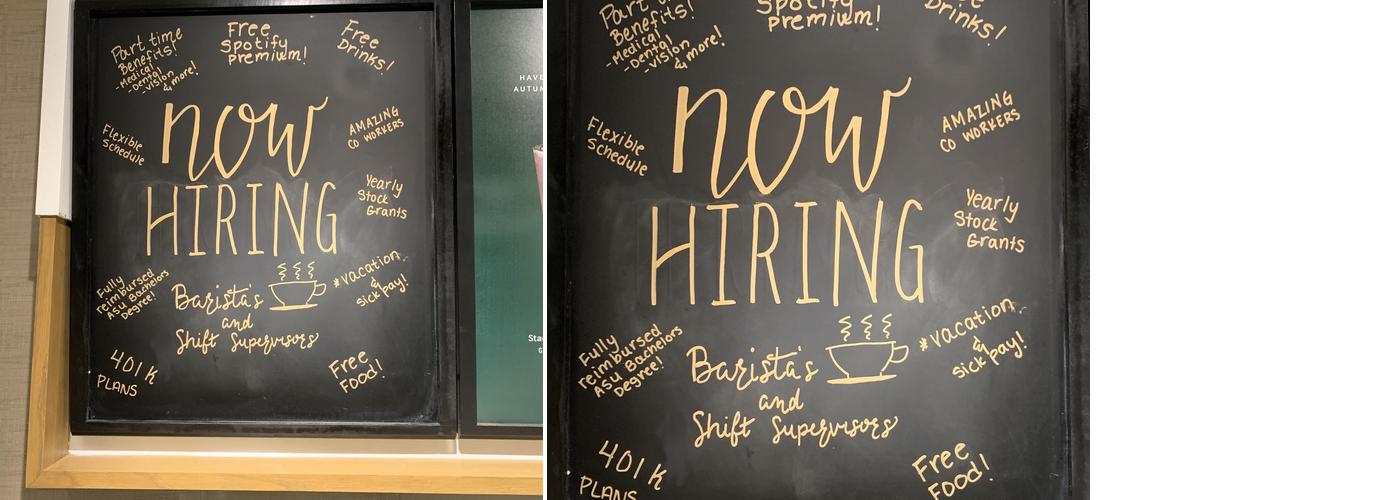 Part time
Benefits!
-Medical
-Dental
-vision
& more!
Free
Spotify
premium!
Free
Drinks!
now
HIRING
Flexible
Schedule
AMAZING
CO WORKERS
Yearly
Stock
Grants
Fully
reimbursed
ASU Bachelors
Degree!
Barista's
and
Shift Supervisors
*vacation
&
sick pay!
401K
PLANS
Free
FOOD!
HAVE
AUTUM
Sta
G
Part
Benefits!
-Medical
-Dental
-vision
& more!
Spotify
premium!
Free
Drinks!
now
HIRING
Flexible
Schedule
AMAZING
CO WORKERS
Yearly
Stock
Grants
Fully
reimbursed
ASU Bachelors
Degree!
Barista's
and
Shift Supervisors
*vacation
&
sick pay!
401K
PLANS
Free
FOOD!